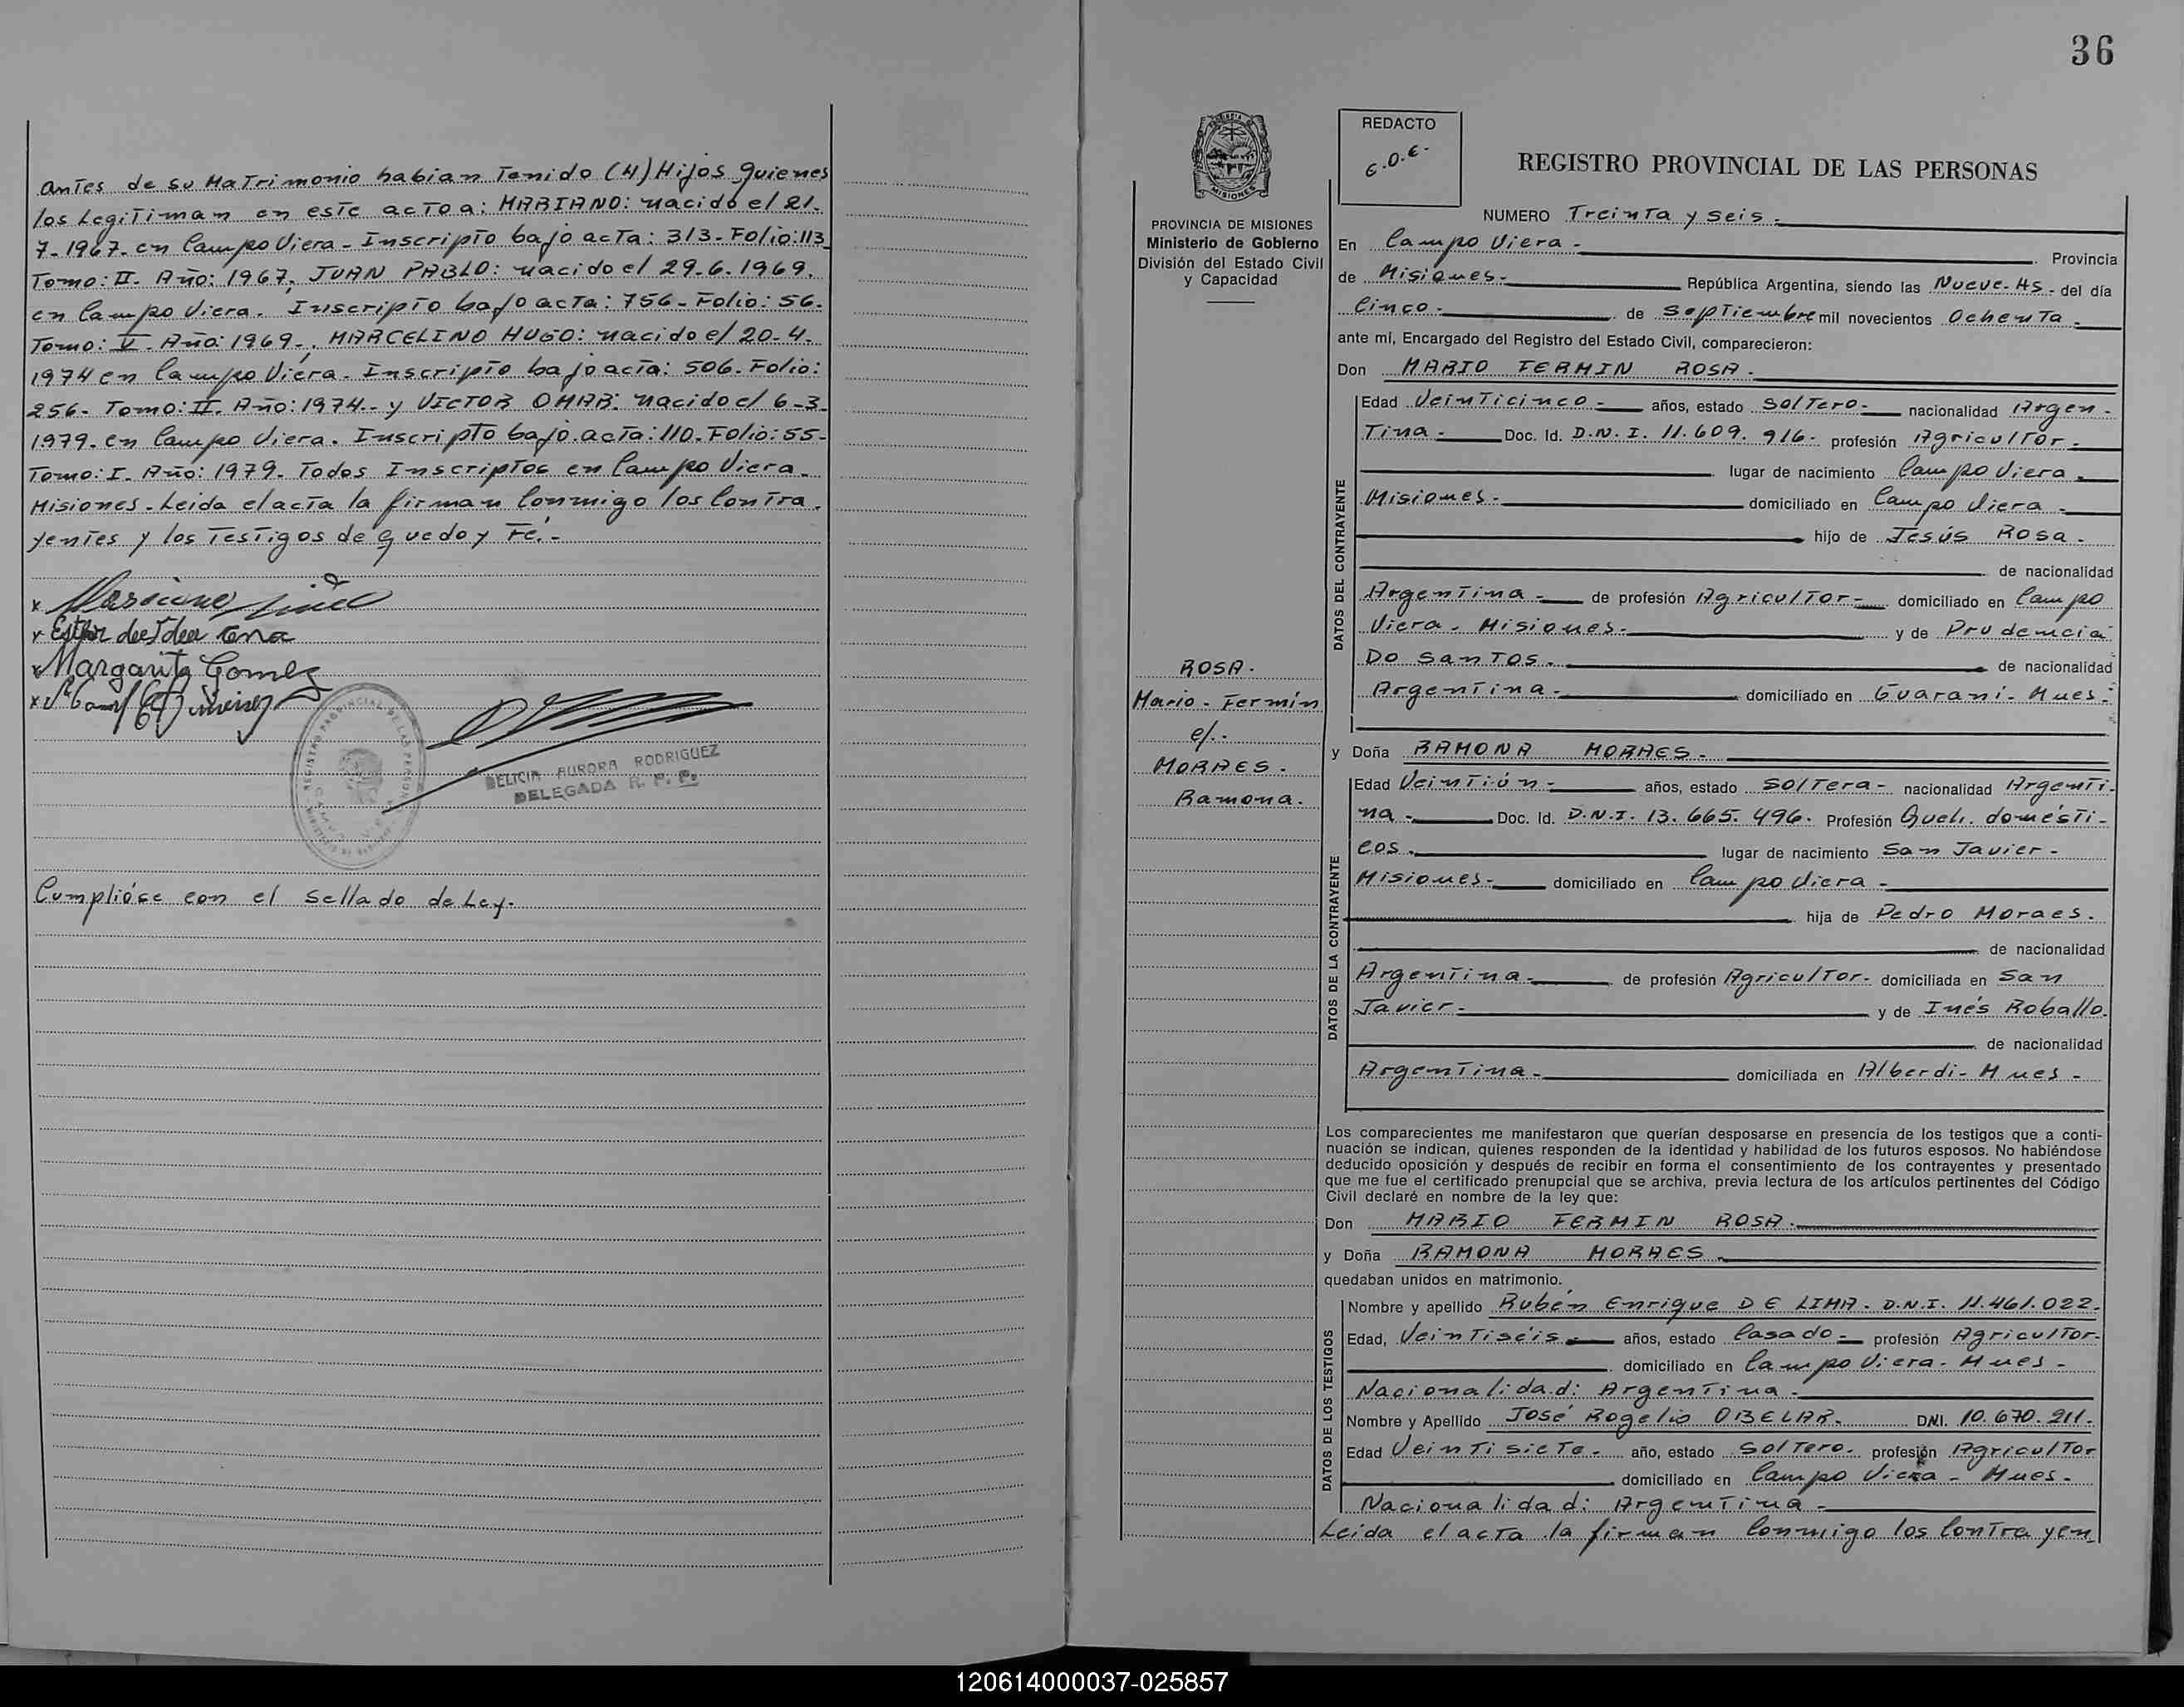 Antes de su Matrimonio habian Tenido (4) Hijos quienes
los Legitiman en este acto a: MARIANO: nacido el 21-
7-1967- en Campo Viera - Inscripto bajo acta: 313- Folio: 113
Tomo: II- Año: 1967, JUAN PABLO: nacido el 29.6.1969.
en Campo Viera. Inscripto bajo acta: 756- Folio: 56.
Tomo: V- Año: 1969-, MARCELINO HUGO: nacido el 20-4-
1974 en Campo Viera. Inscripto bajo acta: 506. Folio:
256- Tomo: II. Año: 1974.- y VICTOR OMAR: nacido el 6-3-
1979- en Campo Viera. Inscripto bajo acta: 110. Folio: 55-
Tomo: I. Año: 1979. Todos Inscriptos en Campo Viera-
Misiones. Leida el acta la firman Conmigo los Contra-
yentes y los Testigos de que doy Fé.-
x
x Ester
x Margarita Gomez
x
DELICIA AURORA RODRIGUEZ
DELEGADA R. P. P.
Cumplióse con el Sellado de Ley.
36
REDACTO
REGISTRO PROVINCIAL DE LAS PERSONAS
NUMERO Treinta y Seis.-
PROVINCIA DE MISIONES
Ministerio de Gobierno
División del Estado Civil
y Capacidad
En Campo Viera - Provincia
de Misiones- República Argentina, siendo las Nueve- Hs- del día
Cinco- de Septiembre mil novecientos Ochenta-
ante mí, Encargado del Registro del Estado Civil, comparecieron:
Don MARIO FERMIN ROSA.
DATOS DEL CONTRAYENTE
Edad Veinticinco- años, estado Soltero- nacionalidad Argen-
Tina- Doc. Id. D.N.I. 11.609.916- profesión Agricultor-
lugar de nacimiento Campo Viera-
Misiones- domiciliado en Campo Viera-
hijo de Jesús Rosa-
de nacionalidad
Argentina- de profesión Agricultor- domiciliado en Campo
Viera- Misiones- y de Prudencia
Do Santos. de nacionalidad
Argentina- domiciliado en Guaraní- Mnes-
ROSA.
Mario- Fermín
c/.-
MORAES.
Ramona.
y Doña RAMONA MORAES-
DATOS DE LA CONTRAYENTE
Edad Veintiún- años, estado Soltera- nacionalidad Argenti-
na- Doc. Id. D.N.I. 13.665.496- Profesión Queh. domésti-
cos. lugar de nacimiento San Javier-
Misiones- domiciliado en Campo Viera-
hija de Pedro Moraes.
de nacionalidad
Argentina- de profesión Agricultor- domiciliada en San
Javier- y de Inés Roballo.
de nacionalidad
Argentina- domiciliada en Alberdi- Mnes-
Los comparecientes me manifestaron que querían desposarse en presencia de los testigos que a conti-
nuación se indican, quienes responden de la identidad y habilidad de los futuros esposos. No habiéndose
deducido oposición y después de recibir en forma el consentimiento de los contrayentes y presentado
que me fue el certificado prenupcial que se archiva, previa lectura de los artículos pertinentes del Código
Civil declaré en nombre de la ley que:
Don MARIO FERMIN ROSA.
y Doña RAMONA MORAES.
quedaban unidos en matrimonio.
DATOS DE LOS TESTIGOS
Nombre y apellido Rubén Enrique DE LIMA- D.N.I. 11.461.022-
Edad, Veintiséis- años, estado Casado- profesión Agricultor-
domiciliado en Campo Viera- Mnes-
Nacionalidad: Argentina-
Nombre y Apellido José Rogelio OBELAR- DNI. 10.670.211-
Edad Veintisiete- año, estado Soltero- profesión Agricultor
domiciliado en Campo Viera- Mnes-
Nacionalidad: Argentina-
Leida el acta la firman Conmigo los Contrayen-
120614000037-025857